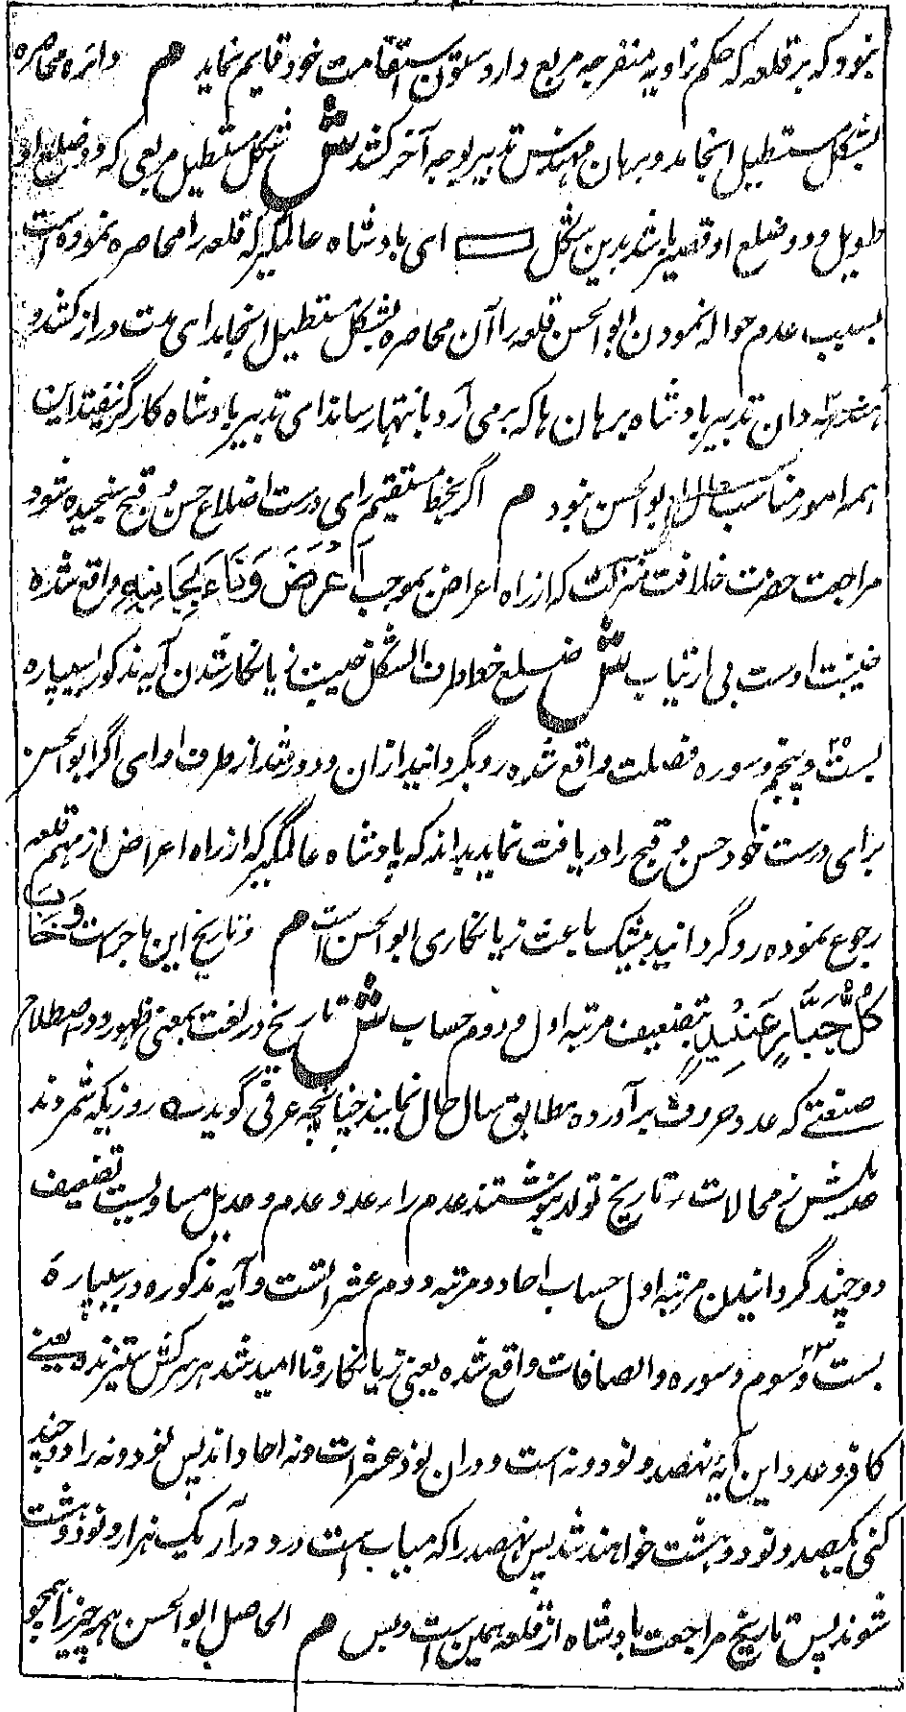 نبود که بر قلعه که حکم زاویه منفرجه مربع دارد ستون استقامت خود قایم نماید م دائره محاصره
بشکل مستطیل انجامد و برهان مهندس تدبیر بوجه آخر کشد ش شکل مستطیل مربعی که دو ضلع او
طویل و دو ضلع او قصیر باشد بدین شکل ای بادشاه عالمگیر که قلعه را محاصره نموده است
بسبب عدم حواله نمودن ابوالحسن قلعه را آن محاصره بشکل مستطیل انجامد ای مدت دراز کشد و
هندسه دان تدبیر بادشاه برهان ها که برمی آرد بانتها رساند ای تدبیر بادشاه کارگر نیفتد این
همه امور مناسب حال ابوالحسن نبود م اگر بخط مستقیم رای درست اضلاع حسن و قبح سنجیده شود
مراجعت حضرت خلافت منزلت که از راه اعراض بموجب اَعْرَضَ وَنَاءَ بِجَانِبِهِ واقع شده
خیبت اوست بی ارتیاب ش ضلع خط اطراف الشکل خیبت زیانکار شدن آیه مذکور در سیپاره
بست و پنجم ۲۵ و سوره فصلت واقع شده رو بگردانید ازان و دور شد از طرف او ای اگر ابوالحسن
برای درست خود حسن و قبح را دریافت نماید بداند که بادشاه عالمگیر که از راه اعراض از مهم قلعه
رجوع نموده رو گردانید بیشک باعث زیانکاری ابوالحسن است م و تاریخ این ماجراست وَخَابَ
کُلُّ جَبَّارٍ عَنِیْدٍ بتضعیف مرتبه اول و دوم حساب ش تاریخ در لغت بمعنی ظهور و در اصطلاح
صنعتے که عدد حروف برآورده مطابق سال حال نمایند چنانچه عرفی گوید ه روزیکه شمردند
عدیلش ز محالات ٭ تاریخ تولد بنوشتند عدم را ٭ عدد عدم و عدیل مساویست تضعیف
دوچند گردانیدن مرتبه اول حساب احاد و مرتبه دوم عشرات است و آیه مذکوره در سیپارهٔ
بست و سوم ۲۳ و سوره والصافات واقع شده یعنی زیانکار و ناامید شد هر سرکش ستیزنده یعنے
کافر و عدد این آیه نهصد و نود و نه است و دران نود عشرات و نه احاد اند پس نود و نه را دو چند
کنی یکصد و نود و هشت خواهند شد پس نهصد را که میاب است درو درآر یک هزار و نود و هشت
شوند پس تاریخ مراجعت بادشاه از قلعه همین است و بس م الحاصل ابوالحسن هر چیز را همچو